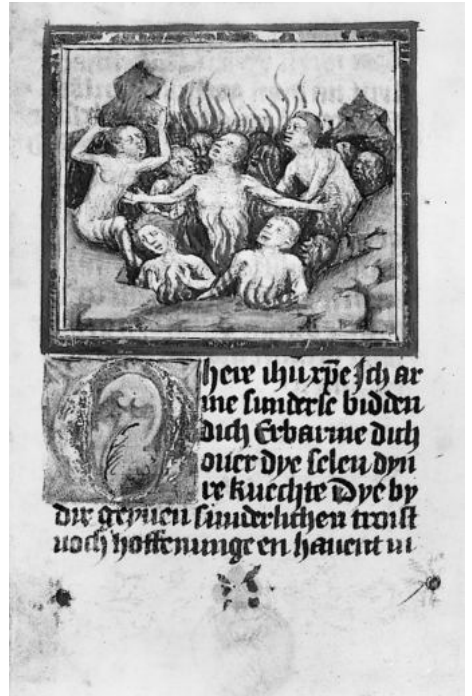 O here ihu xpe Ich ar
me sunderse bidden
dich Erbarme dich
ouer dye selen dyn
re knechte Dye by
dir geynen sunderlichen troist
noch hoffenunge en hauent